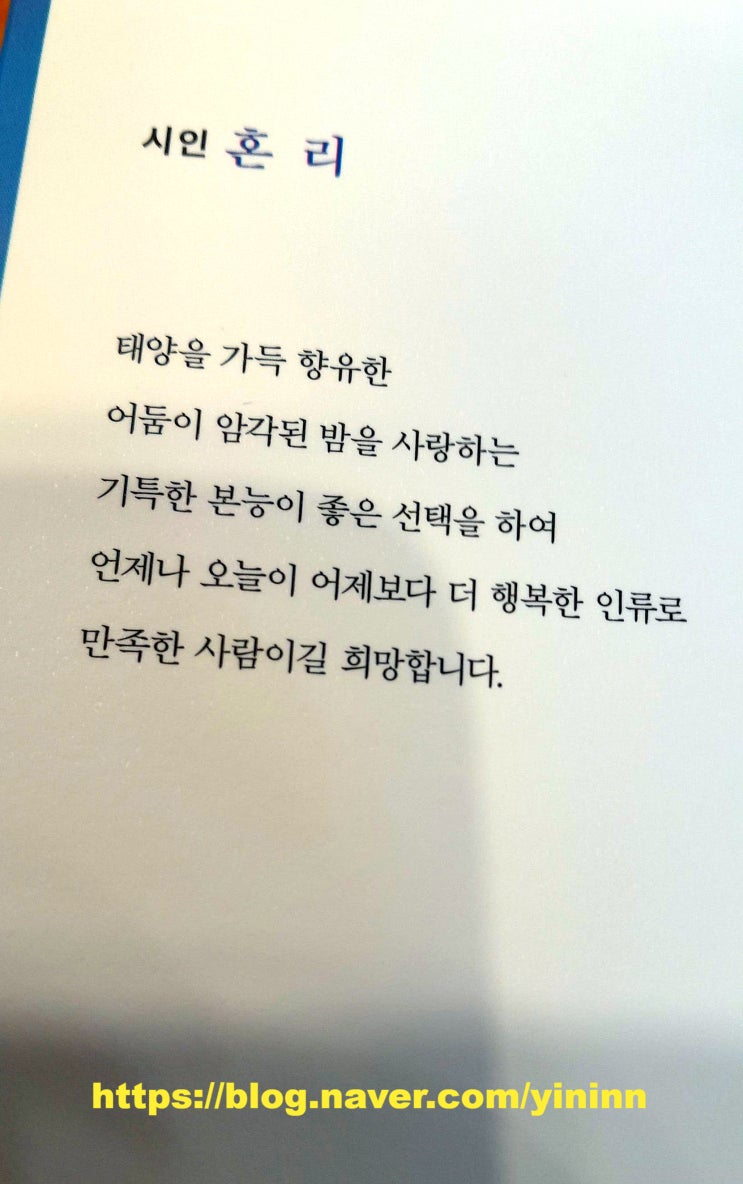 시인 혼 리
태양을 가득 향유한
어둠이 암각된 밤을 사랑하는
기특한 본능이 좋은 선택을 하여
언제나 오늘이 어제보다 더 행복한 인류로
만족한 사람이길 희망합니다.
https://blog.naver.com/yininn